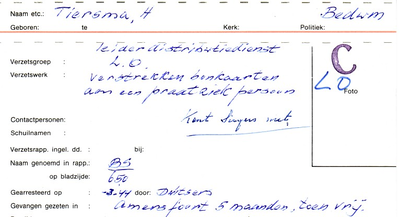 Naam etc.: Tiersma, H Bedum
Geboren: te Kerk: Politiek:
leider distributiedienst
Verzetsgroep : L.O.
Verzetswerk : verstrekken bonkaarten
aan een praatziek persoon
C
LO
Foto
Contactpersonen: Kent Siegers niet
Schuilnaam :
Verzetsrapp. ingel. dd. : bij:
Naam genoemd in rapp.: BS
op bladzijde: 650
Gearresteerd op : -3-44 door: Duitsers
Gevangen gezeten in : Amersfoort 5 maanden, toen vrij.